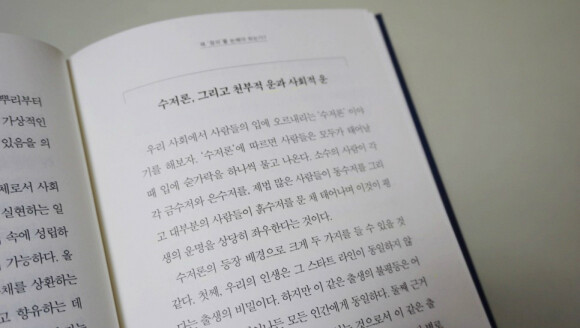 뿌리부터
가상적인
있음을 의
제로서 사회
실현하는 일
속에 성립하
가능하다. 올
채를 상환하는
고 향유하는 데
수저론, 그리고 천부적 운과 사회적 운
우리 사회에서 사람들의 입에 오르내리는 '수저론' 이야
기를 해보자. '수저론'에 따르면 사람들은 모두가 태어날
때 입에 숟가락을 하나씩 물고 나온다. 소수의 사람이 각
각 금수저와 은수저를, 제법 많은 사람들이 동수저를 그리
고 대부분의 사람들이 흙수저를 문 채 태어나며 이것이 평
생의 운명을 상당히 좌우한다는 것이다.
수저론의 등장 배경으로 크게 두 가지를 들 수 있을 것
같다. 첫째, 우리의 인생은 그 스타트 라인이 동일하지 않
다는 출생의 비밀이다. 하지만 이 같은 출생의 불평등은 어
모든 인간에게 동일하다. 둘째 근거
로서 이 같은 출